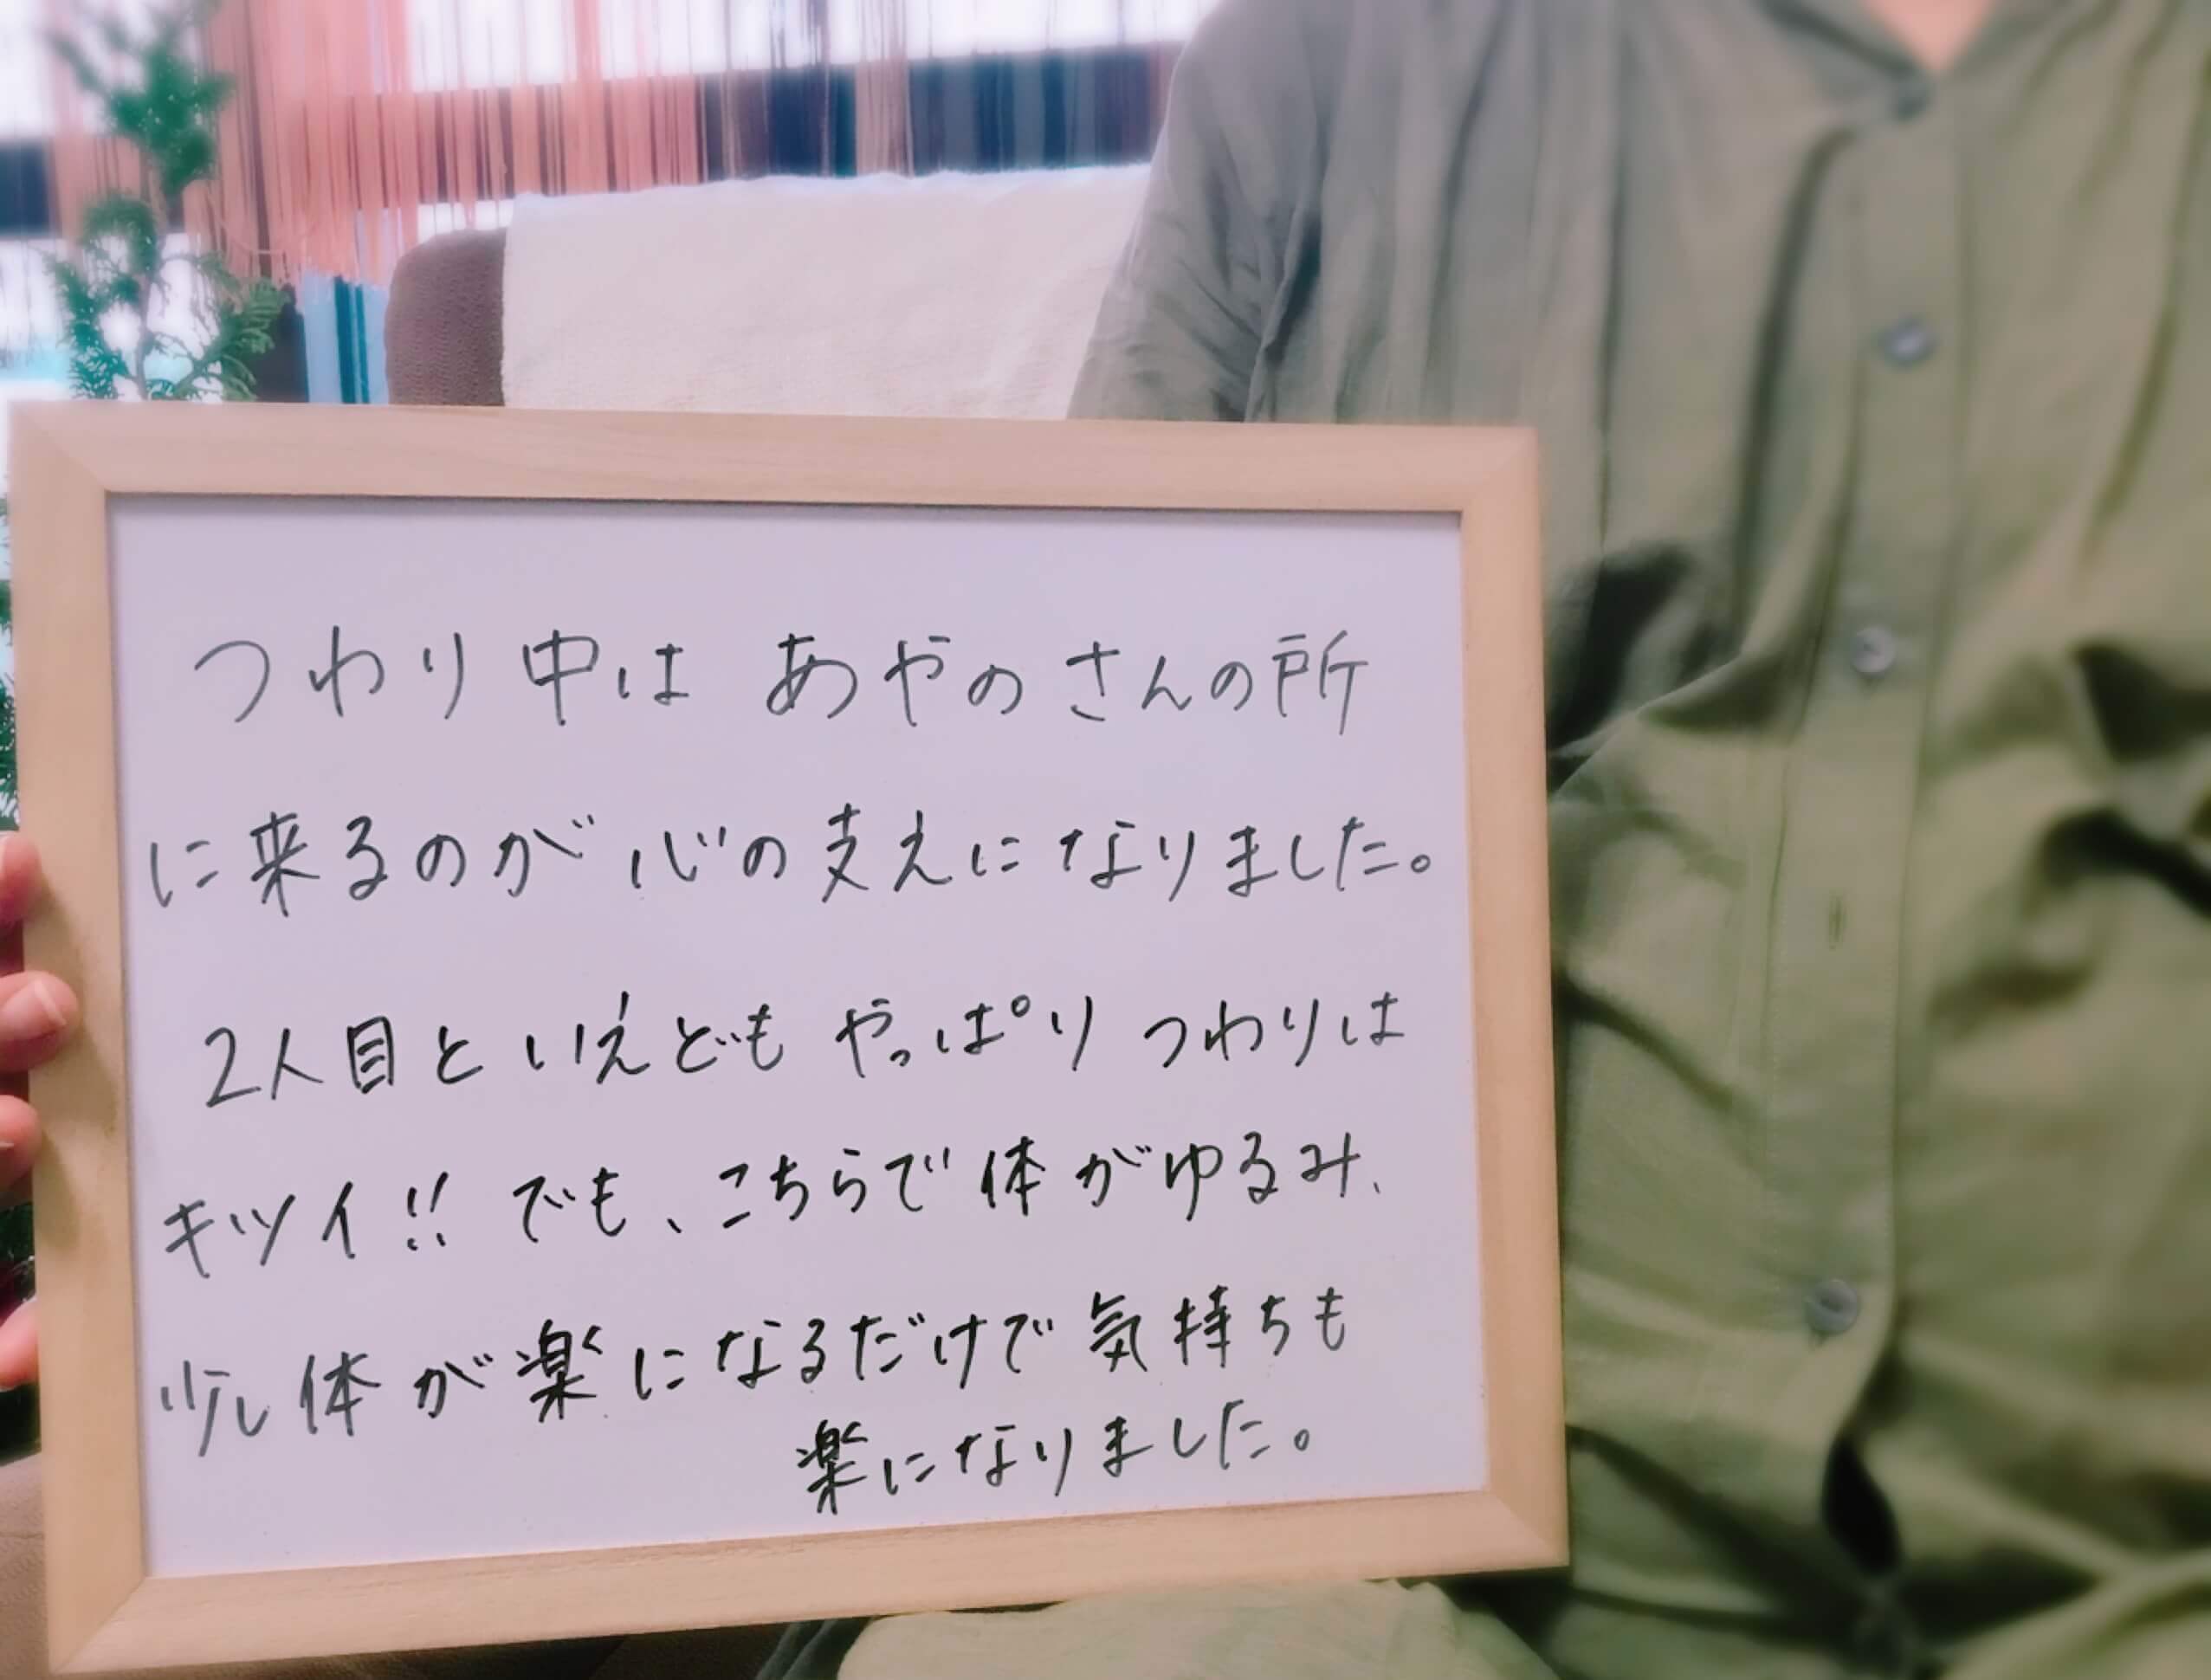 つわり中は あやのさんの所
に来るのが心の支えになりました。
2人目といえども やっぱり つわりは
キツイ!! でも、こちらで体がゆるみ、
少し体が楽になるだけで気持ちも
楽になりました。